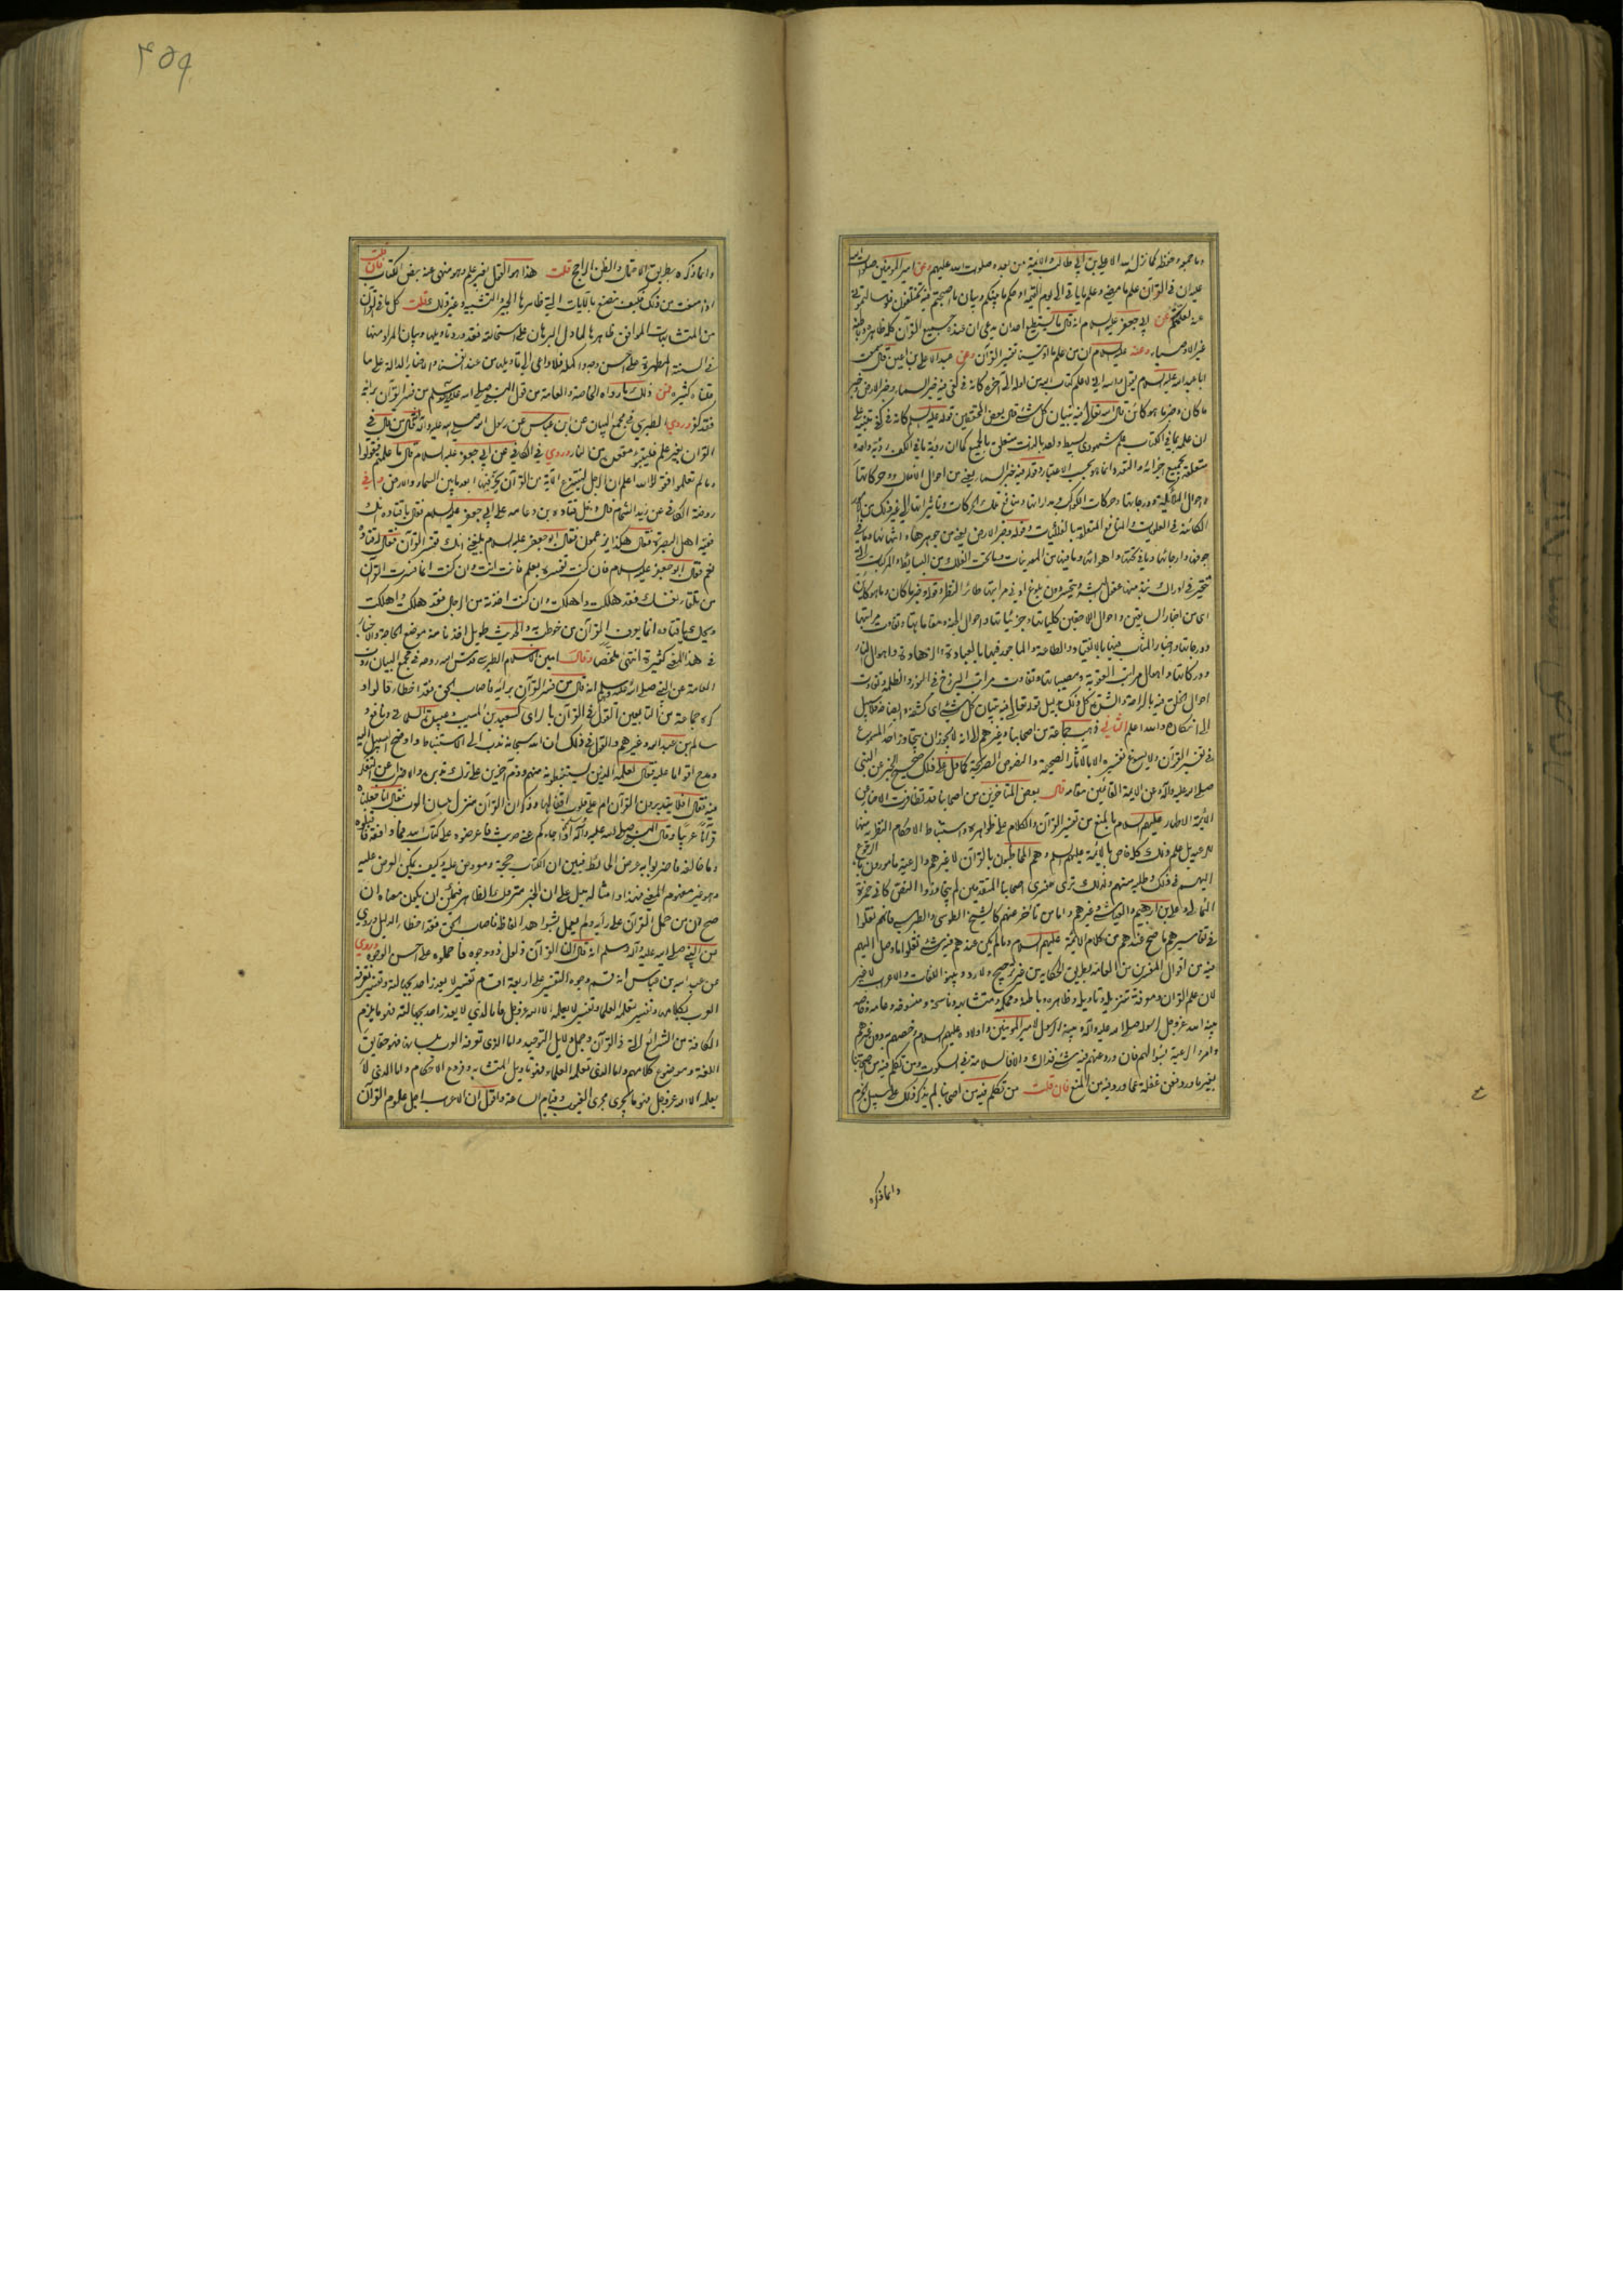 وما جمعه وحفظه كما نزل الله الا علي بن ابي طالب والائمة من بعده صلوات الله عليهم وعن امير المؤمنين صلوات الله
عليه ان في القرآن علم ما مضى وعلم ما ياتي الى يوم القيمة وحكم ما بينكم وبيان ما اصبحتم فيه تختلفون فلو سالتموني
عنه لعلمتكم وعن ابي جعفر عليه السلام انه قال ما يستطيع احد ان يدعي ان عنده جميع القرآن كله ظاهره وباطنه
غير الاوصياء وعنه عليه السلام ان من علم ما اوتينا تفسير القرآن وعن عبد الاعلى بن اعين قال سمعت
ابا عبد الله عليه السلام يقول والله اني لاعلم كتاب الله من اوله الى آخره كانه في كفي فيه خبر السماء وخبر الارض وخبر
ما كان وخبر ما هو كائن قال الله تعالى فيه تبيان كل شئ قال بعض المحققين قوله عليه السلام كانه في كفي تنبيه على
ان علمه بما في الكتاب علم شهودي بسيط واحد بالذات متعلق بالجميع كما ان رؤية ما في الكف رؤية واحدة
متعلقة بجميع اجزائه والتعدد انما هو بحسب الاعتبار وقوله فيه خبر السماء يعني من احوال الافلاك وحركاتها
واحوال الملائكة ودرجاتها وحركات الكواكب ومداراتها ومنافع تلك الحركات وتاثيراتها الى غير ذلك من الامور
الكائنة في العلويات والمنافع المتعلقة بالفلكيات وقوله وخبر الارض يعني من جوهرها وانتهائها وما في
جوفها وارجائها وما في تحتها واهوائها وما فيها من المعدنيات وما تحت الفلك من البسايط والمركبات التي
تتحير في ادراك نبذ منها عقول البشر ويتحسر دون بلوغ ادنى مراتبها طائر النظر وقوله وخبر ما كان وما هو كائن
اى من اخبار السابقين واحوال اللاحقين كلياتها وجزئياتها واحوال الجنة ومقاماتها وتفاوت مراتبها
ودرجاتها واخبار المثاب فيها بالانقياد والطاعة والماجور فيها بالعبادة والزهادة واهوال النار
ودركاتها واهوال مراتب العقوبة ومصيباتها وتفاوت مراتب البرزخ في النور والظلمة وتفاوت
احوال الخلق فيه بالراحة والشدة كل ذلك بدليل قوله تعالى فيه تبيان كل شئ اى كشفه وايضاحه فلا سبيل
الى انكاره والله اعلم الثاني ذهب جماعة من اصحابنا وغيرهم الى انه لا يجوز ان يتجاوز احد المسموع
في تفسير القرآن ولا يسوغ تفسيره الا بالآثار الصحيحة والنصوص الصريحة كما دل على ذلك صحيح الخبر عن النبي
صلى الله عليه وآله وعن الائمة القائمين مقامه قال بعض المتاخرين من اصحابنا قد تظافرت الاخبار عن
الائمة الاطهار عليهم السلام بالمنع من تفسير القرآن والكلام على ظواهره واستنباط الاحكام النظرية منها
بل عدم علم ذلك كله خاص بالائمة عليهم السلام وهم المخاطبون بالقرآن لا غيرهم والرعية مامورون بالرجوع
اليهم في ذلك وطلبه منهم ولذلك ترى مفسرى اصحابنا المتقدمين لم يتجاوزوا النص كابي حمزة
الثمالي وعلي بن ابرهيم والعياشي وغيرهم واما من تاخر عنهم كالشيخ الطوسي والطبرسي فانهم نقلوا
في تفاسيرهم ما صح عندهم من كلام الائمة عليهم السلام وما لم يكن عندهم فيه شئ نقلوا ما وصل اليهم
فيه من اقوال المفسرين من العامة بطريق الحكاية من غير ترجيح ولا رد وبينوا اللغات والاعراب لا غير
لان علم القرآن ومعرفة تنزيله وتاويله وظاهره وباطنه ومحكمه ومتشابهه وناسخه ومنسوخه وعامه وخاصه
بينه الله عز وجل لرسوله صلى الله عليه وآله وبينه الرسول لامير المؤمنين واولاده عليهم السلام وخصهم به دون غيرهم
وامر الرعية بسؤالهم فان ورد عنهم فيه شئ فذاك والا فالسلامة في السكوت ومن تكلم فيه من اصحابنا
بغير ما ورد فعن غفلة عما ورد فيه من المنع فان قلت من تكلم فيه من اصحابنا لم يذكر ذلك على سبيل الجزم
وانما ذكره
٤٥٩
وانما ذكره بطريق الاحتمال والظن الراجح قلت هذا هو القول بغير علم وهو منهى عنه بنص الكتاب فان قلت
اذا منعت من ذلك فكيف نصنع بالآيات التي ظاهرها الجبر والتشبيه وغير ذلك قلت كل ما في القرآن
من المتشابهات الموافق ظاهرها لما دل البرهان على استحالته فقد ورد تاويلها وبيان المراد منها
في السنة المطهرة على احسن وجه واكمله فلا داعى الى تاويله من عند انفسنا والاخبار الدالة على ما
قلناه كثيرة فمن ذلك ما رواه الخاصة والعامة من قول النبي صلى الله عليه وآله وسلم من فسر القرآن برايه
فقد كفر وروي الطبرسي في مجمع البيان عن ابن عباس عن رسول الله صلى الله عليه وآله قال من قال في
القرآن بغير علم فليتبوء مقعده من النار وروي في الكافي عن ابي جعفر عليه السلام قال ما علمتم فقولوا
وما لم تعلموا فقولوا الله اعلم ان الرجل لينتزع الآية من القرآن يخر فيها ابعد ما بين السماء والارض وفي
روضة الكافي عن زيد الشحام قال دخل قتادة بن دعامة على ابي جعفر عليه السلام فقال يا قتادة انت
فقيه اهل البصرة فقال هكذا يزعمون فقال ابو جعفر عليه السلام بلغني انك تفسر القرآن فقال له قتادة
نعم فقال ابو جعفر عليه السلام فان كنت تفسره بعلم فانت انت وان كنت انما فسرت القرآن
من تلقاء نفسك فقد هلكت واهلكت وان كنت اخذته من الرجال فقد هلكت واهلكت
ويحك يا قتادة انما يعرف القرآن من خوطب به والحديث طويل اخذنا منه موضع الحاجة والاخبار
في هذا المعنى كثيرة انتهى ملخصا وقال امين الاسلام الطبرسي قدس الله روحه في مجمع البيان روت
العامة عن النبي صلى الله عليه وسلم انه قال من فسر القرآن برايه فاصاب الحق فقد اخطا قالوا و
كره جماعة من التابعين القول في القرآن بالراى كسعيد بن المسيب وعبيدة السلماني ونافع و
سالم بن عبد الله وغيرهم والقول في ذلك ان الله سبحانه ندب الى الاستنباط واوضح السبيل اليه
ومدح اقواما عليه فقال لعلمه الذين يستنبطونه منهم وذم آخرين على ترك تدبره والاضراب عن التفكر
فيه فقال افلا يتدبرون القرآن ام على قلوب اقفالها وذكر ان القرآن منزل بلسان العرب فقال انا جعلناه
قرآنا عربيا وقال النبي صلى الله عليه وآله اذا جاءكم عني حديث فاعرضوه على كتاب الله فما وافقه فاقبلوه
وما خالفه فاضربوا به عرض الحائط فبين ان الكتاب حجة ومعروض عليه وكيف يمكن العرض عليه
وهو غير مفهوم المعنى فهذا وامثاله يدل على ان الخبر متروك الظاهر فيمكن ان يكون معناه ان
صح ان من حمل القرآن على رأيه ولم يعمل بشواهد الفاظه فاصاب الحق فقد اخطا الدليل وروي
عن النبي صلى الله عليه وآله وسلم انه قال ان القرآن ذلول ذو وجوه فاحملوه على احسن الوجوه وروي
عن عبد الله بن عباس انه قسم وجوه التفسير على اربعة اقسام تفسير لا يعذر احد بجهالته وتفسير تعرفه
العرب بكلامها وتفسير يعلمه العلماء وتفسير لا يعلمه الا الله عز وجل فاما الذي لا يعذر احد بجهالته فهو ما يلزم
الكافة من الشرائع التي في القرآن وجمل دلايل التوحيد واما الذى تعرفه العرب بلسانها فهو حقايق
اللغة وموضوع كلامهم واما الذي تعلمه العلماء فهو تاويل المتشابه وفروع الاحكام واما الذي لا
يعلمه الا الله عز وجل فهو ما يجرى مجرى الغيوب وقيام الساعة واقول ان الاعراب اجل علوم القرآن